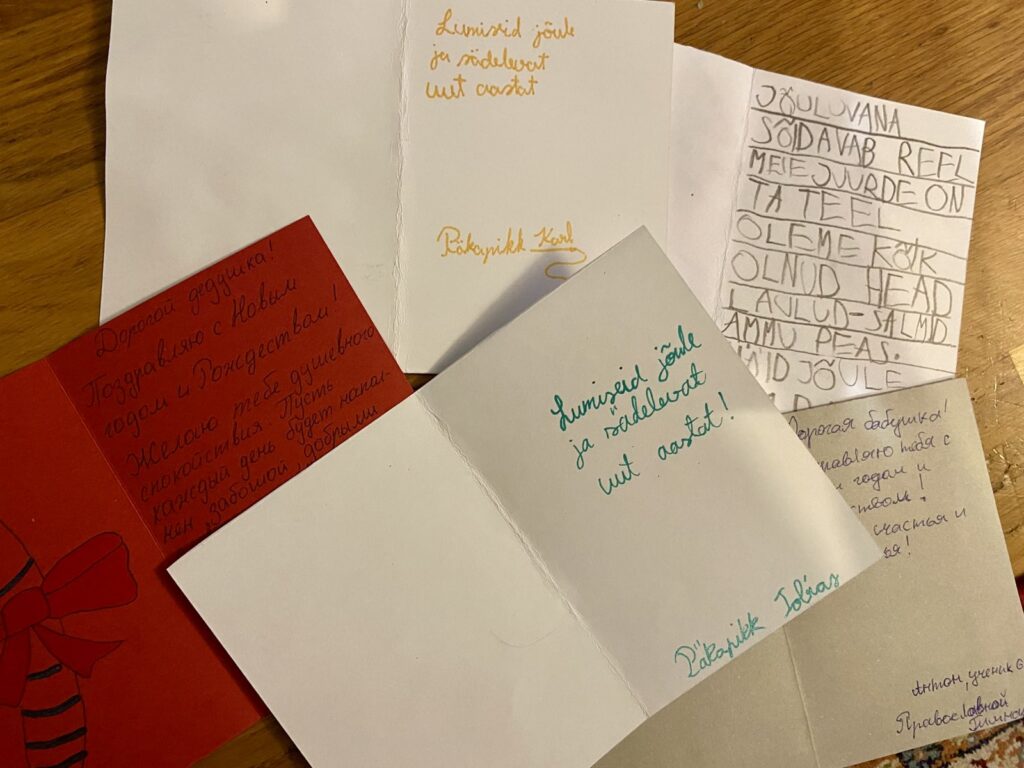 Lumiseid jõule
ja sädelevat
uut aastat
Päkapikk Karl
JÕULUVANA
SÕIDAVAB REEL
MEIE JUURDE ON
TA TEEL
OLEME KÕIK
OLNUD HEAD
LAULUD-SALMID
AMMU PEAS.
JÕULE
Дорогой дедушка!
Поздравляю с Новым
годом и Рождеством!
Желаю тебе душевного
спокойствия. Пусть
каждый день будет напол-
нен заботой, добрыми
Lumiseid jõule
ja sädelevat
uut aastat!
Päkapikk Tobias
Дорогая бабушка!
тебя с
годом и
!
счастья и
Антон, ученик 6
Православной